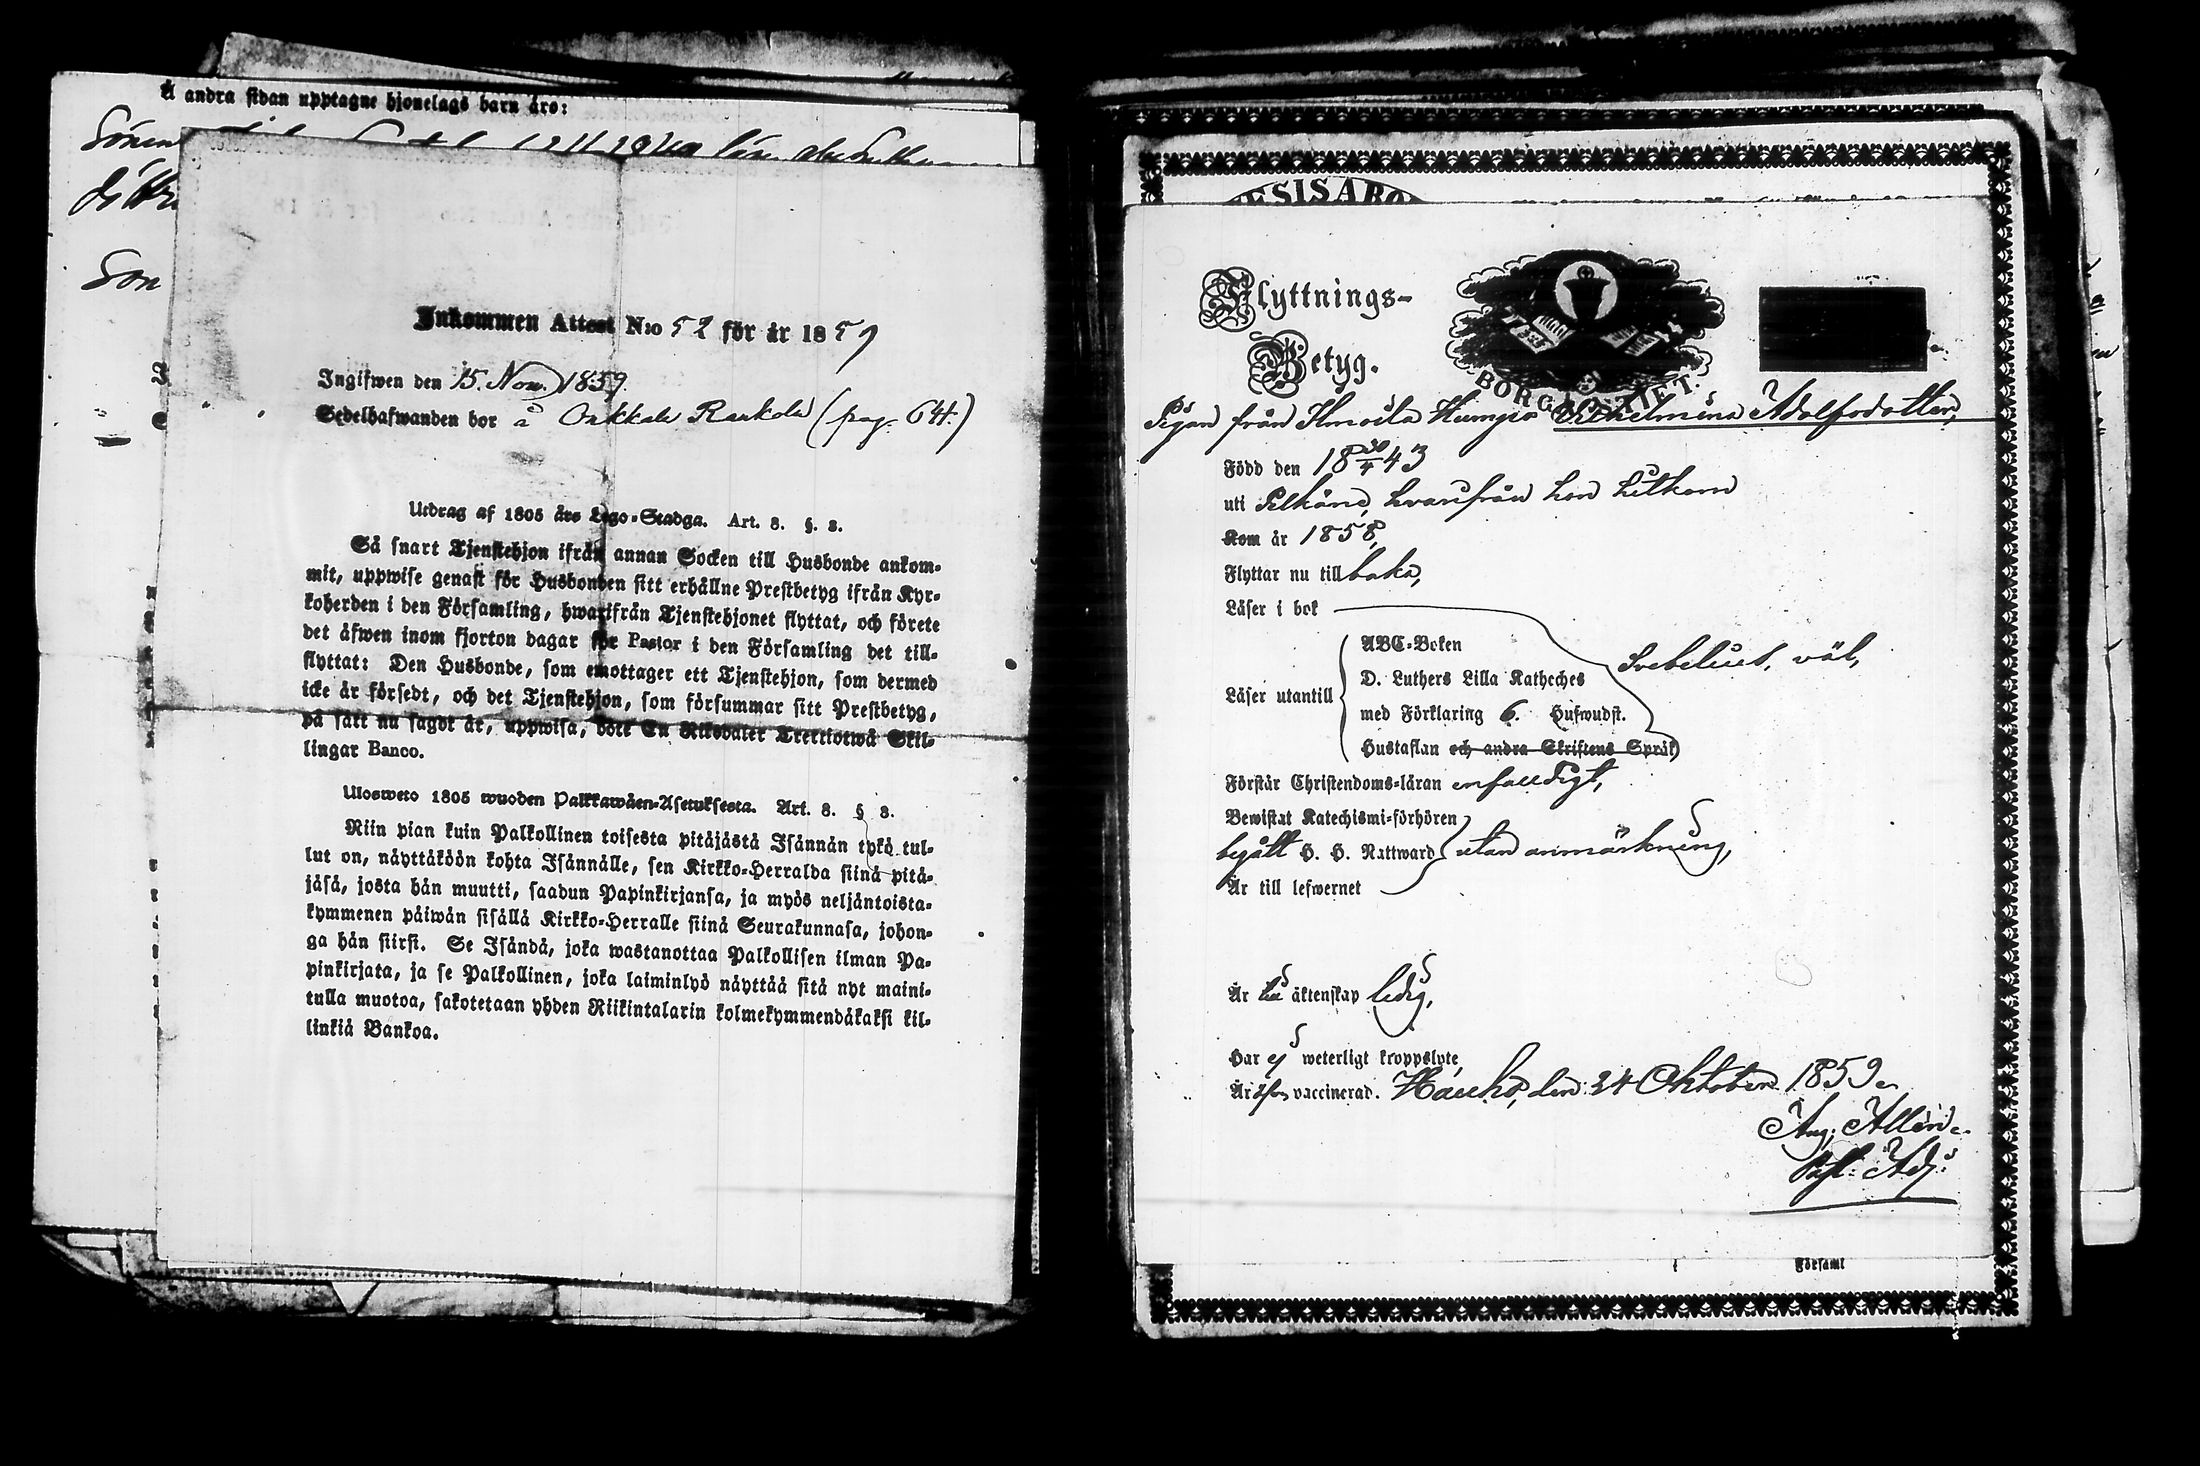 Å andra sidan upptagne hjonelags barn äro:
Sönen
Son
Inkommen Attest N:o 52 för år 1859
Ingifwen den 15. Nov. 1859.
Sedelhafwanden bor å Onkkala Raukola (pag. 644.)
Utdrag af 1805 års Lego-Stadga. Art. 8. §. 8.
Så snart Tjenstehjon ifrån annan Socken till Husbonde ankom-
mit, uppwise genast för Husbonden sitt erhållne Prestbetyg ifrån Kyr-
koherden i den Församling, hwarifrån Tjenstehjonet flyttat, och förete
det äfwen inom fjorton dagar för Pastor i den Församling det till-
flyttat: Den Husbonde, som emottager ett Tjenstehjon, som dermed
icke är försedt, och det Tjenstehjon, som försummar sitt Prestbetyg,
på sätt nu sagdt är, uppwisa, böte En Riksdaler Trettiotwå Skil-
lingar Banco.
Ulosweto 1805 wuoden Palkkawäen-Asetuksesta. Art. 8. § 8.
Niin pian kuin Palkollinen toisesta pitäjästä Isännän tykö tul-
lut on, näyttäköön kohta Isännälle, sen Kirkko-Herralda siinä pitä-
jäsä, josta hän muutti, saadun Papinkirjansa, ja myös neljäntoista-
kymmenen päiwän sisällä Kirkko-Herralle siinä Seurakunnasa, johon-
ga hän siirsi. Se Isändä, joka wastanottaa Palkollisen ilman Pa-
pinkirjata, ja se Palkollinen, joka laiminlyö näyttää sitä nyt maini-
tulla muotoa, sakotetaan yhden Riikintalarin kolmekymmendäkaksi kil-
linkiä Bankoa.
Flyttnings-
Betyg.
BORGÅ STIFT.
Pigan från Ilmoila Humpio Wilhelmina Adolfsdotter,
Född den 18 30/4 43
uti Pelkäne, hvarifrån hon hitkom
Kom år 1858,
Flyttar nu tillbaka,
Läser i bok
ABC-Boken
Svebelius, väl,
D. Luthers Lilla Katheches
Läser utantill
med Förklaring 6. Hufwudst.
Hustaflan och andra Skriftens Språk
Förstår Christendoms-läran enfaldigt,
Bewistat Katechismi-förhören
begått H. H. Nattward utan anmärkning,
Är till lefwernet
Är till äktenskap ledig,
Har ej weterligt kroppslyte,
Är äfven vaccinerad. Hauho, den 24 Oktober 1859.
Aug. Allén.
Adj.
Församl